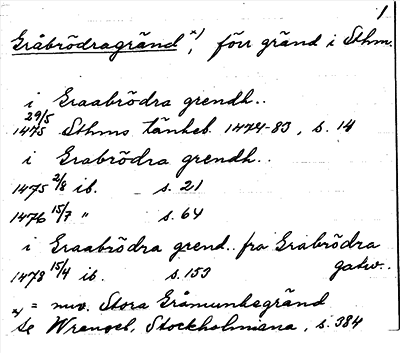 1
Gråbrödragränd x), förr gränd i Sthm.
i Graabrödra grendh..
29/5
1475 Sthms tänkeb. 1474-83, s. 14
i Grabrödra grendh..
1475 2/8 ib. s. 21
1476 15/7 " s. 64
i Graabrödra grend.. fra Grabrödra
gatw..
1478 15/4 ib. s. 153
x) = nuv. Stora Gråmunkegränd
se Wrangel, Stockholmiana, s. 384